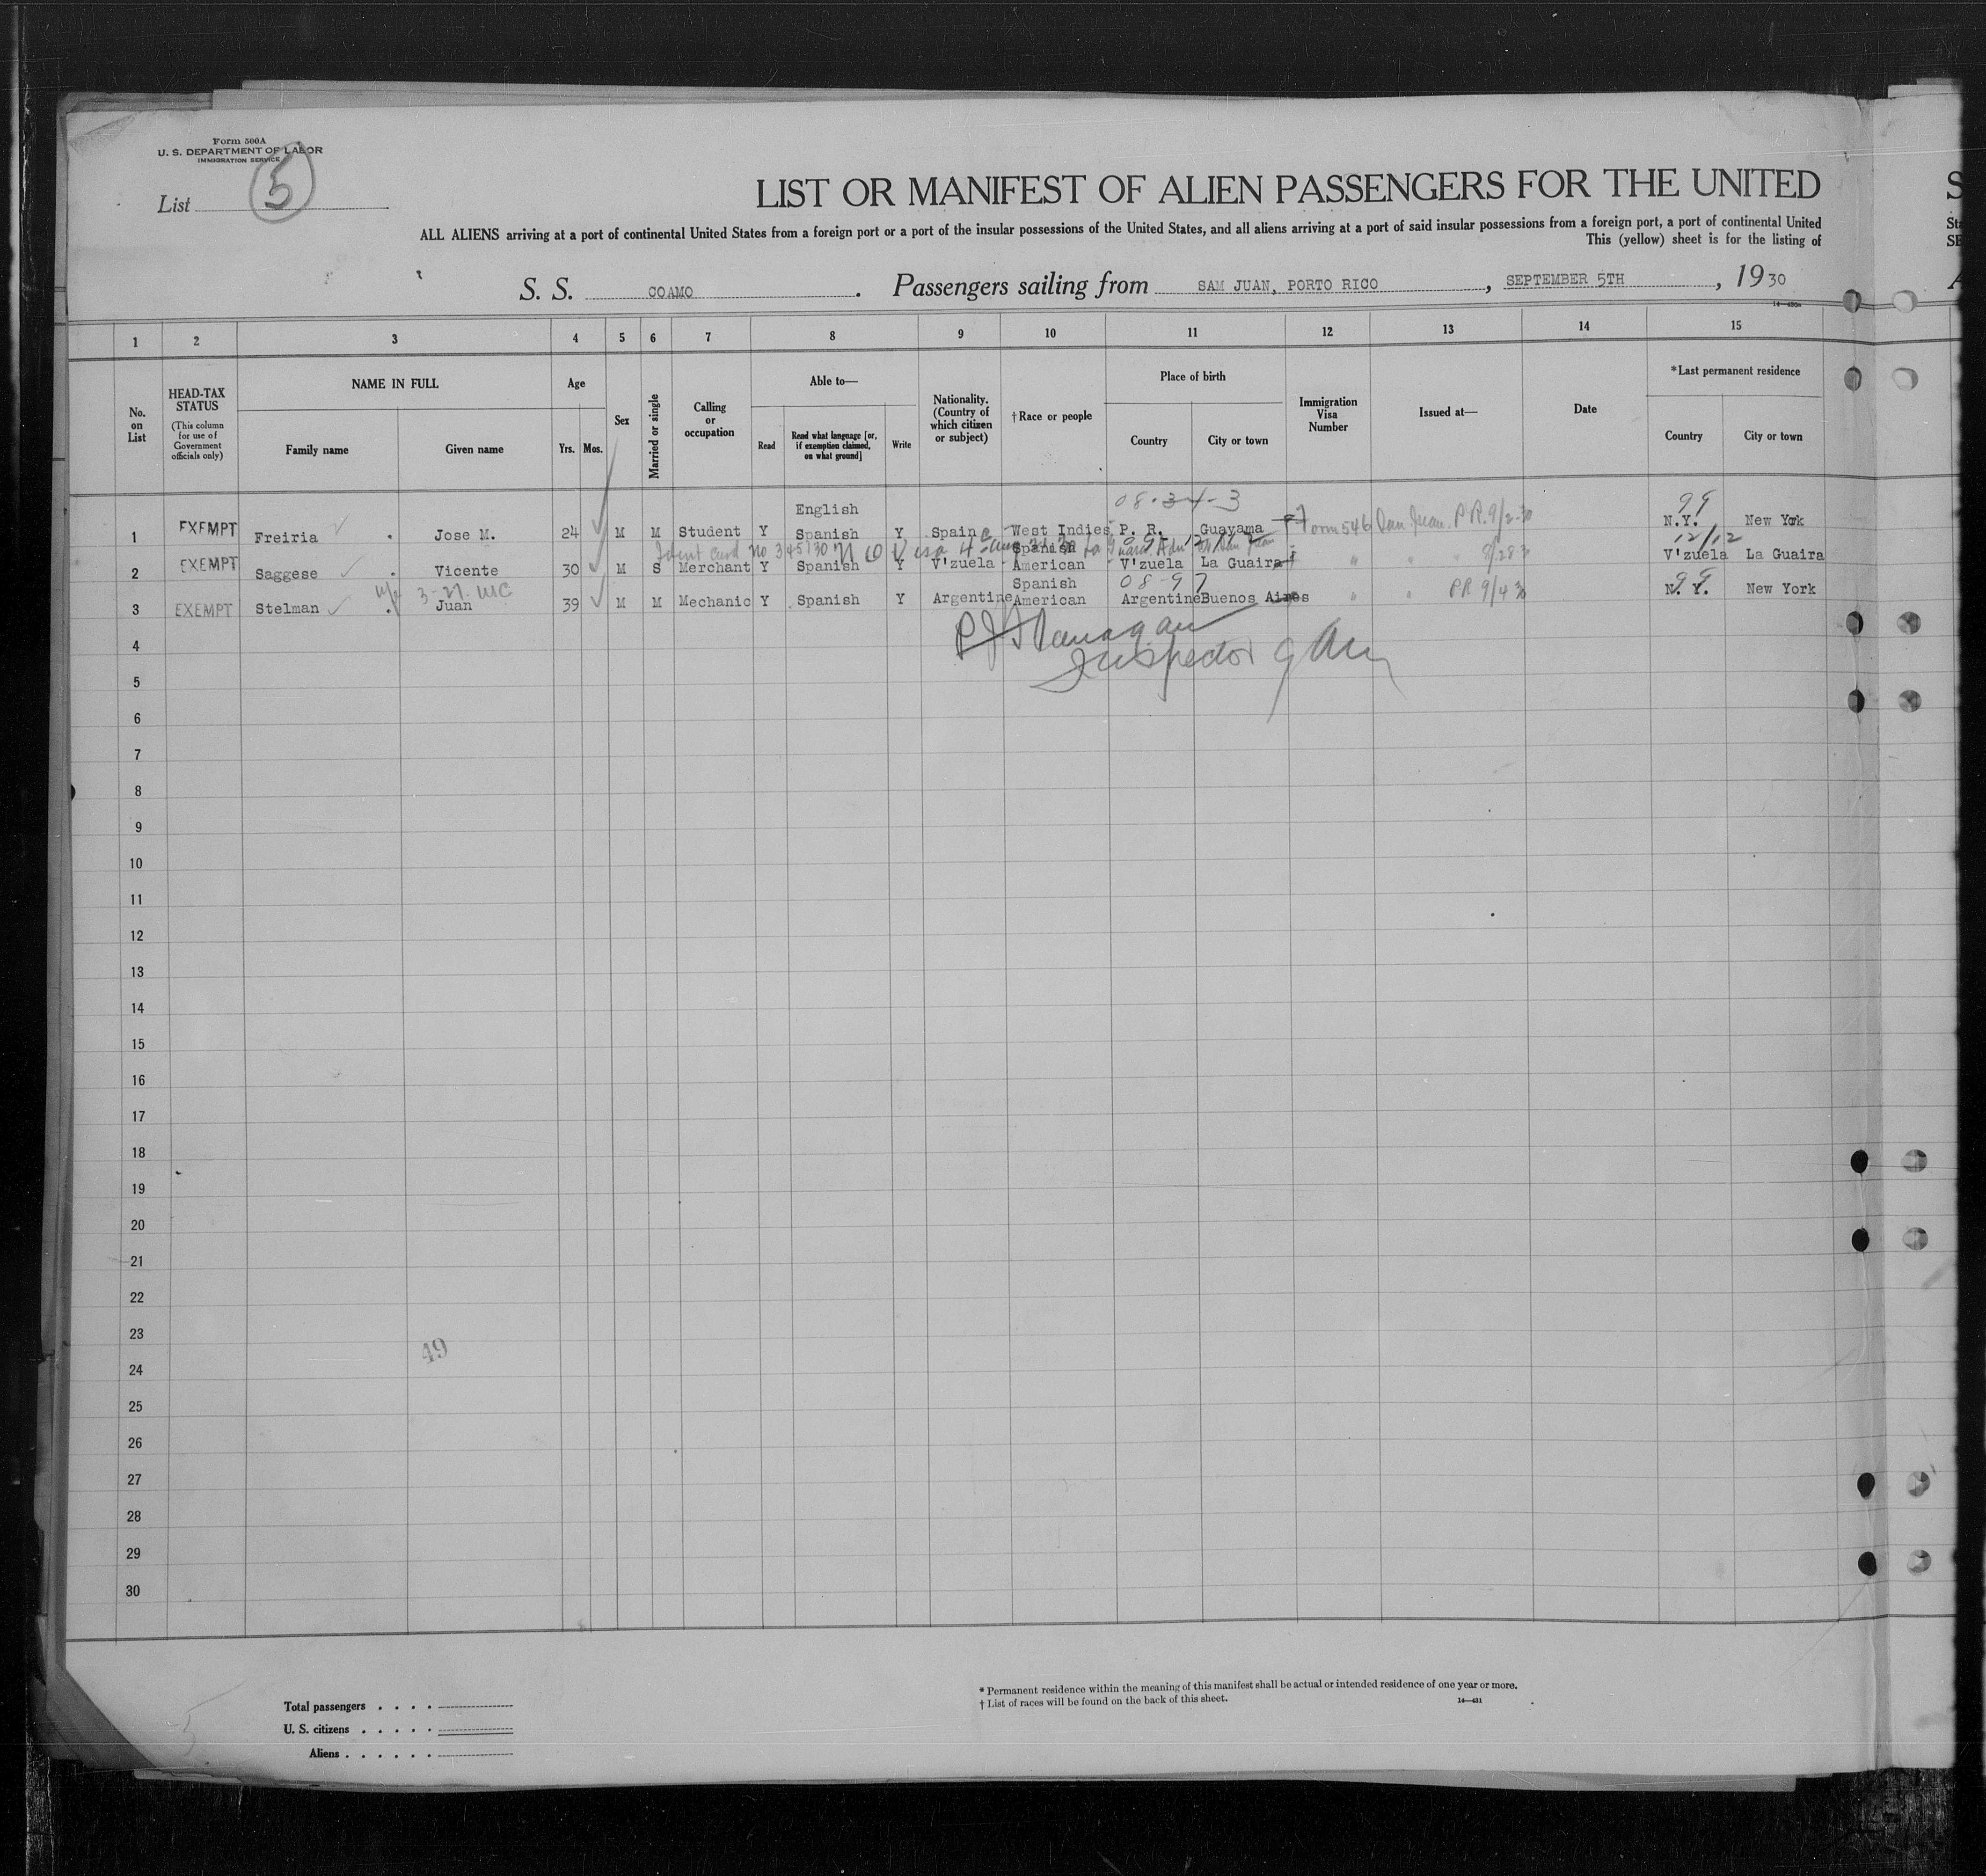 Form 500A
U. S. DEPARTMENT OF LABOR
IMMIGRATION SERVICE
List 5
LIST OR MANIFEST OF ALIEN PASSENGERS FOR THE UNITED
ALL ALIENS arriving at a port of continental United States from a foreign port or a port of the insular possessions of the United States, and all aliens arriving at a port of said insular possessions from a foreign port, a port of continental United
This (yellow) sheet is for the listing of
S. S. COAMO. Passengers sailing from SAM JUAN, PORTO RICO, SEPTEMBER 5TH, 1930
1 2 3 4 5 6 7 8 9 10 11 12 13 14 15
No. on List
HEAD-TAX STATUS (This column for use of Government officials only)
NAME IN FULL
Family name
Given name
Age
Yrs. Mos.
Sex
Married or single
Calling or occupation
Able to—
Read
Read what language [or, if exemption claimed, on what ground]
Write
Nationality. (Country of which citizen or subject)
†Race or people
Place of birth
Country
City or town
Immigration Visa Number
Issued at—
Date
*Last permanent residence
Country
City or town
English 08-34-3 99
1 EXEMPT Freiria Jose M. 24 M M Student Y Spanish Y Spain West Indies P. R. Guayama Form 546 San Juan P.R. 9/2-30 N.Y. New York
Spanish 12/12
2 EXEMPT Saggese Vicente 30 M S Merchant Y Spanish Y V'zuela American V'zuela La Guaira " " " V'zuela La Guaira
3-27 Spanish 08-97 99
3 EXEMPT Stelman Juan 39 M M Mechanic Y Spanish Y Argentine American Argentine Buenos Aires " " PR 9/4 30 N. Y. New York
4
P J Flanagan
Inspector
5
6
7
8
9
10
11
12
13
14
15
16
17
18
19
20
21
22
23
49
24
25
26
27
28
29
30
* Permanent residence within the meaning of this manifest shall be actual or intended residence of one year or more.
† List of races will be found on the back of this sheet. 14—431
Total passengers . . . .
U. S. citizens . . . . .
Aliens . . . . . .